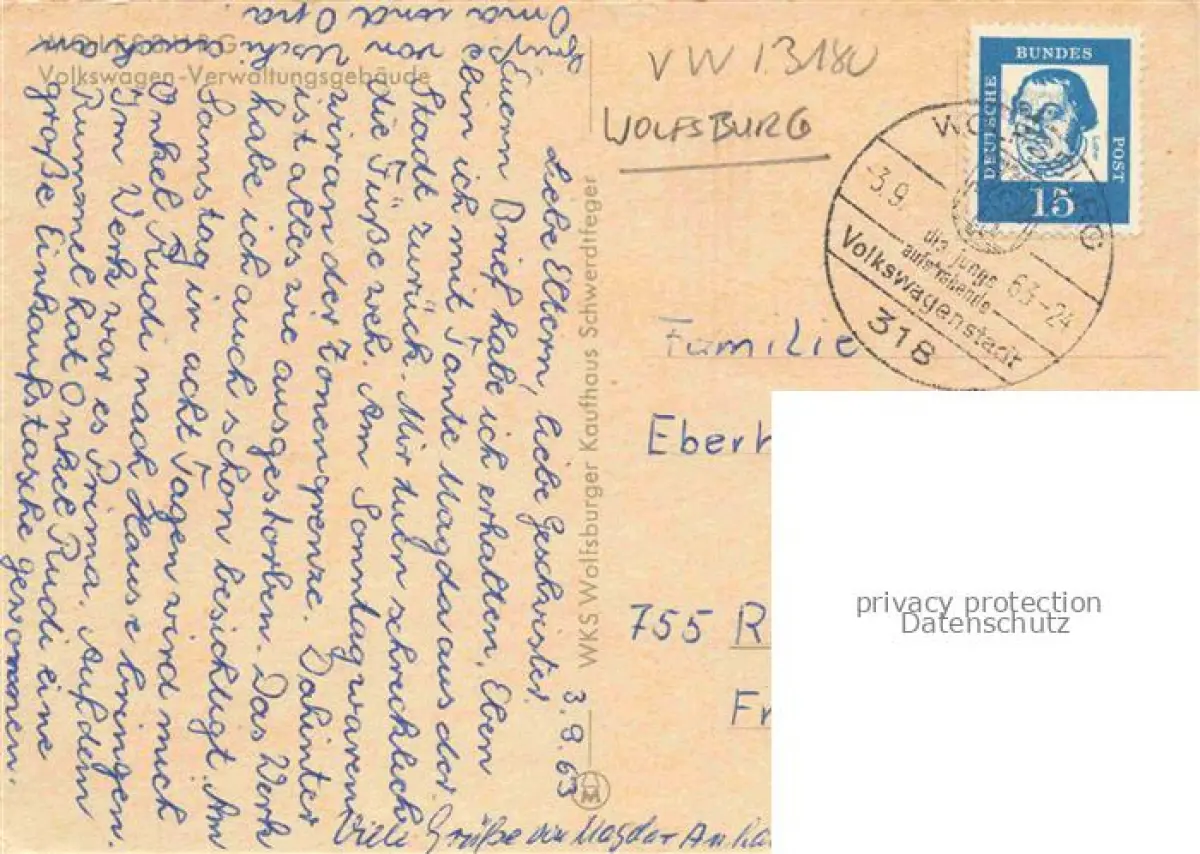 WOLFSBURG
Volkswagen-Verwaltungsgebäude
3.9.63
Liebe Eltern, liebe Geschwister.
Euern Brief habe ich erhalten. Eben
bin ich mit Tante Magda aus der
Stadt zurück. Mir tuln schrecklich
die Füße weh. Am Sonntag waren
wir an der Zonengrenze. Dahinter
ist alles wie ausgestorben. Das Werk
habe ich auch schon besichtigt. Am
Samstag in acht Tagen wird mich
Onkel Rudi nach Hause bringen.
Im Werk war es Prima. Auf dem
Rummel hat Onkel Rudi eine
große Einkaufstasche gewonnen.
von
Uschi
auch an
Oma und Opa.
Viele Grüße von Magda
WKS Wolfsburger Kaufhaus Schwerdtfeger
VW 13180
WOLFSBURG
DEUTSCHE
BUNDES
POST
Luther
15
-3.9.
63-24
die junge
aufstrebende
Volkswagenstadt
318
Familie
Eberh
755 R
Fr
privacy protection
Datenschutz